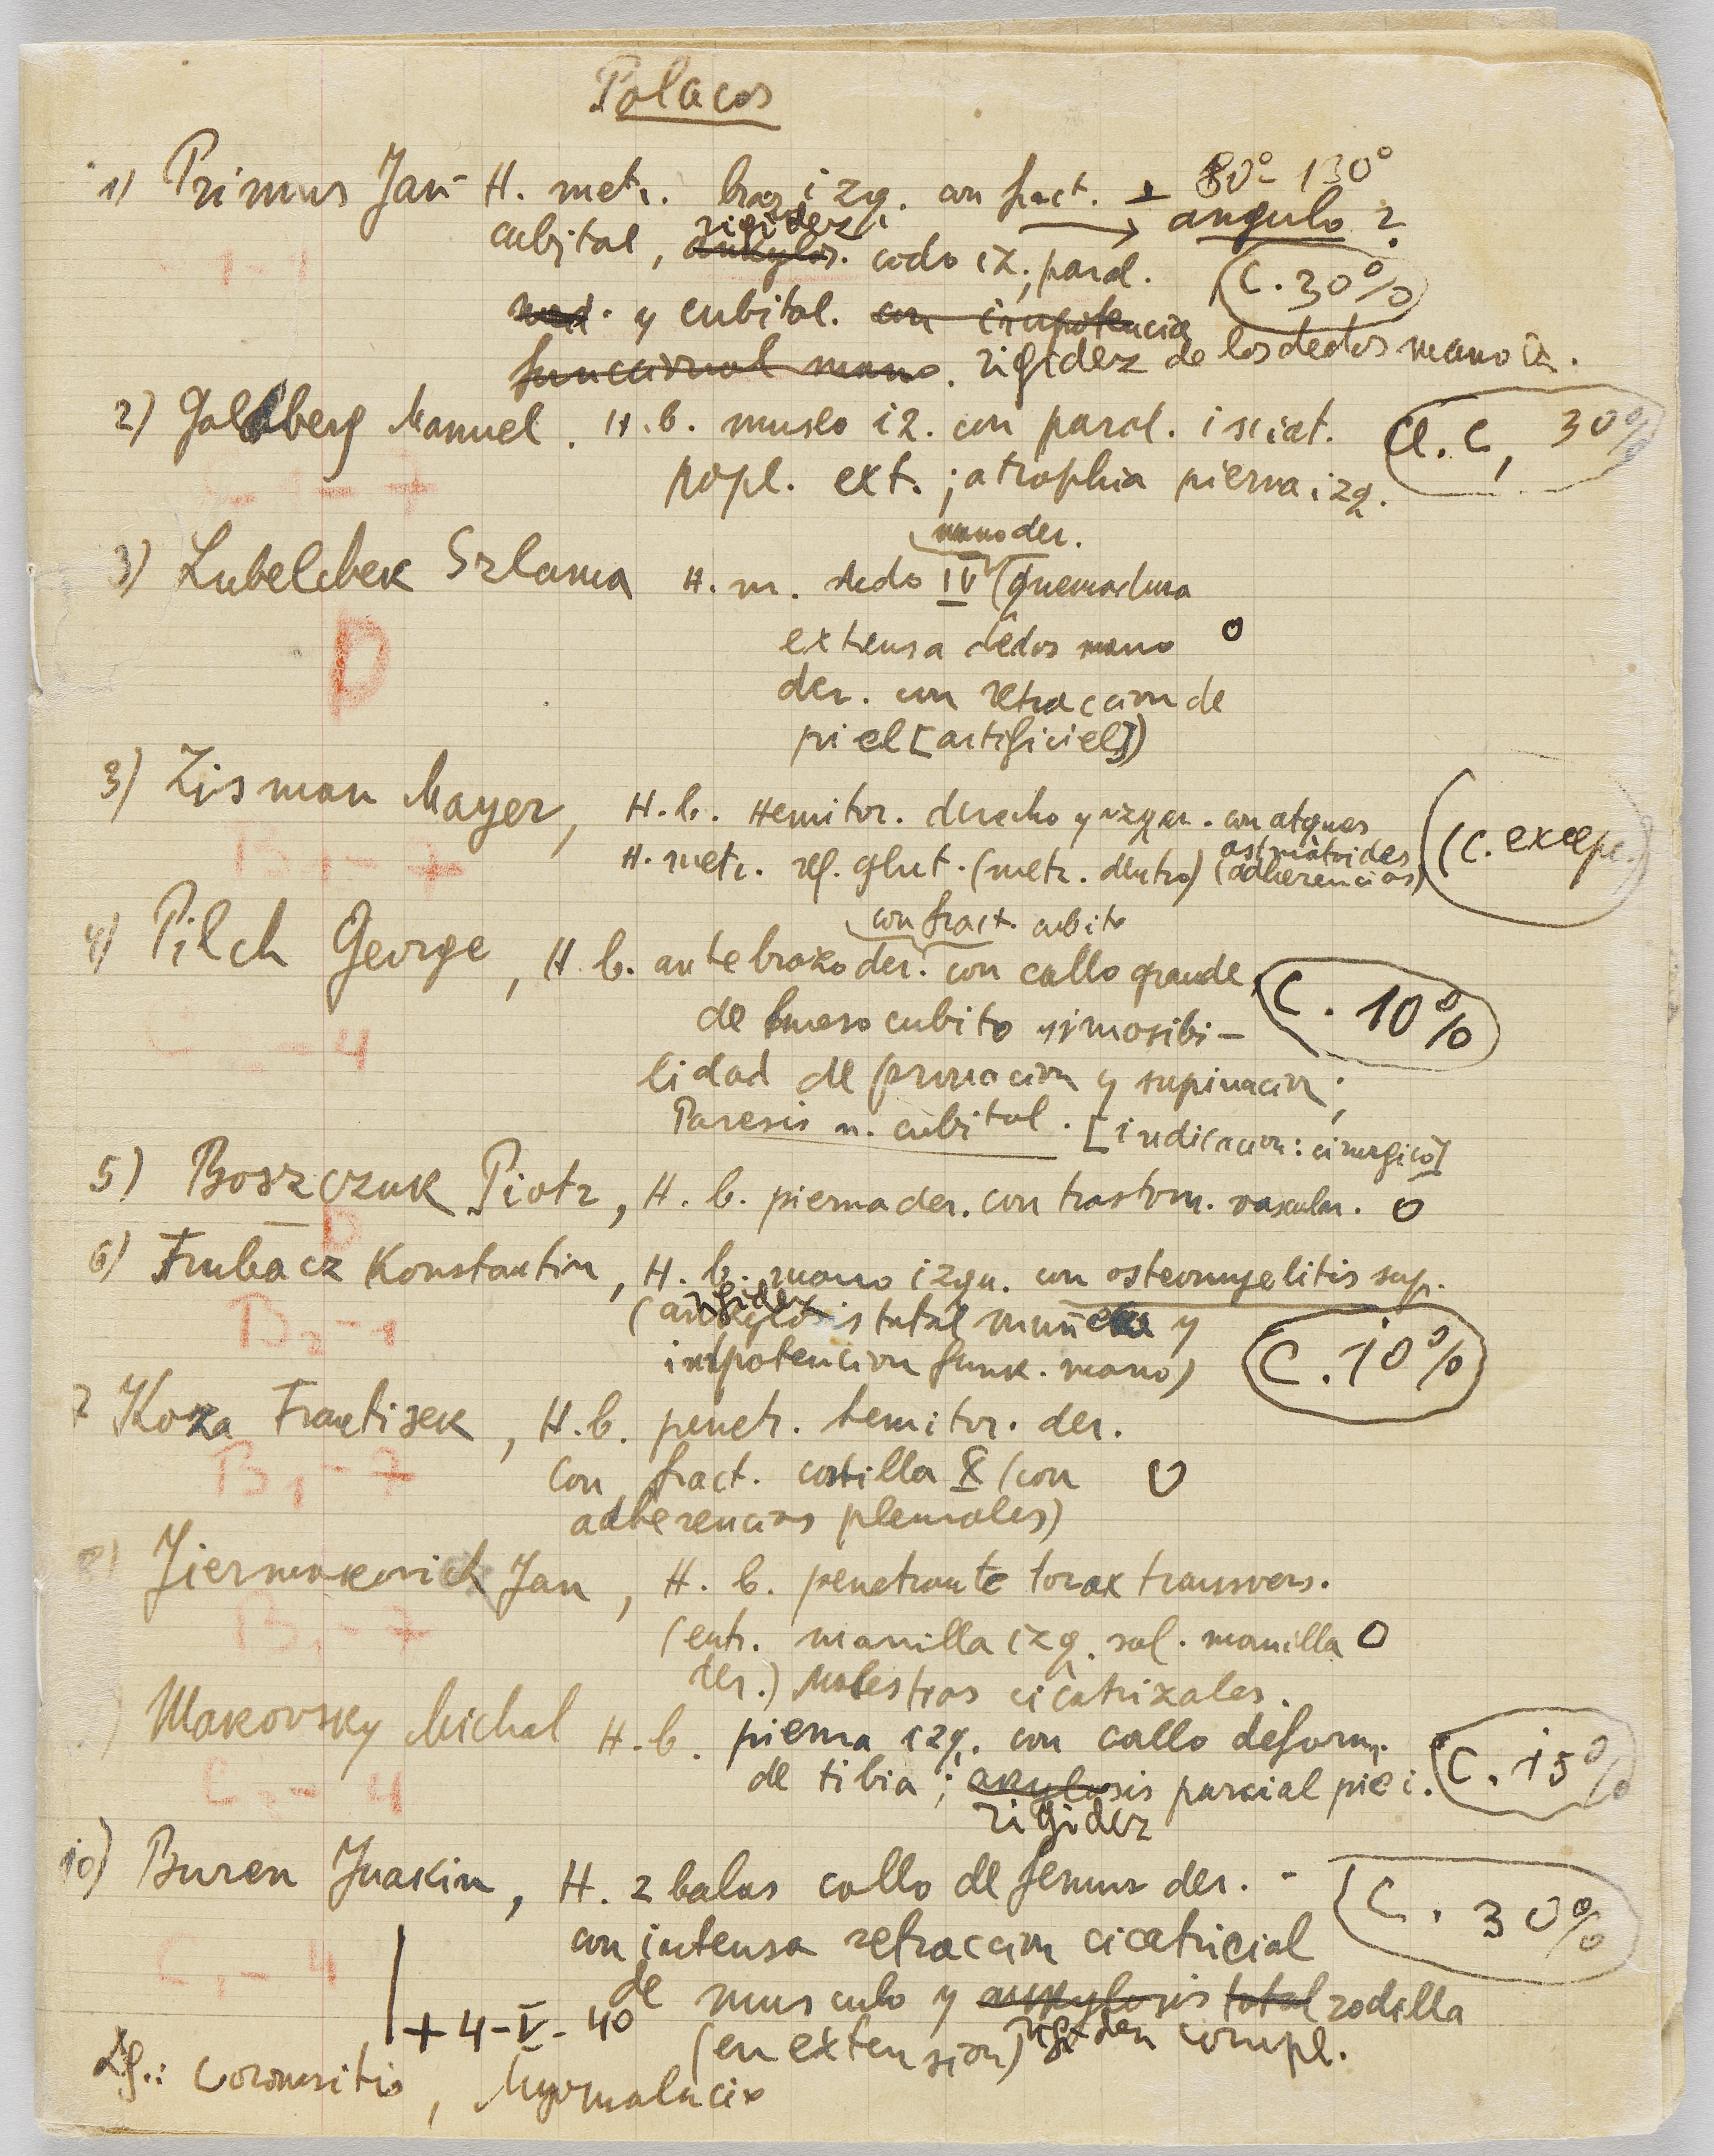 Polacos
1) Primus Jan - H. metr. braz izq. con fract. ± 80°-130°
cubital, ankylos. rigidez codo iz., paral. → angulo ?
med. y cubital. con impotencia (C. 30%)
funccional mano. rigidez de los dedos mano iz.
1-1
2) Goldberg Manuel. H.b. muslo iz. con paral. isciat. Cl. C, 30%
popl. ext.; atrophia pierna izq.
C1-7
mano der.
3) Lubelchek Szlama H. m. dedo IV (quemadura
extensa dedos mano O
der. con retraccion de
piel [artificiel])
D
3) Zisman Mayer, H.b. Hemitor. derecho y izqu. con ataques
asmatoides (C. excep.)
H. metr. reg. glut. (metr. dentro) (adherencias)
B1-7
con fract. cubito
4) Pilch George, H.b. antebrazo der. con callo grande C. 10%
de hueso cubito y imosibi-
lidad de pronacion y supinacion;
Paresis n. cubital. [indicacion: cirurgico]
C - 4
5) Boszczuk Piotr, H.b. pierna der. con trastorn. vascular. O
D
6) Frubacz Konstantin, H.b. mano izqu. con osteomyelitis sup.
(ankylosis rigidez total muñeka y
impotencion funk. mano) C. 10%
B2-1
7 Koza Frantisek, H.b. penetr. hemitor. der.
con fract. costilla X (con O
adherencias pleurales)
B1-7
8) Jiermakovich Jan, H.b. penetrante torax transvers.
(entr. mamilla izq. sal. mamilla O
der.) Molestias cicatrizales.
B1-7
Makovsky Michal H.b. pierna izq. con callo deform.
de tibia; anylosis parcial pie i. C. 15%
rigidez
C2-4
10) Buren Juakim, H. 2 balas callo de femur der. - C. 30%
con intensa retraccion cicatricial
de musculo y ankylosis total rodilla
(en extension) rigidez compl.
C1-4
+ 4-V-40
Dg.: Coronaritis, Myomalacia